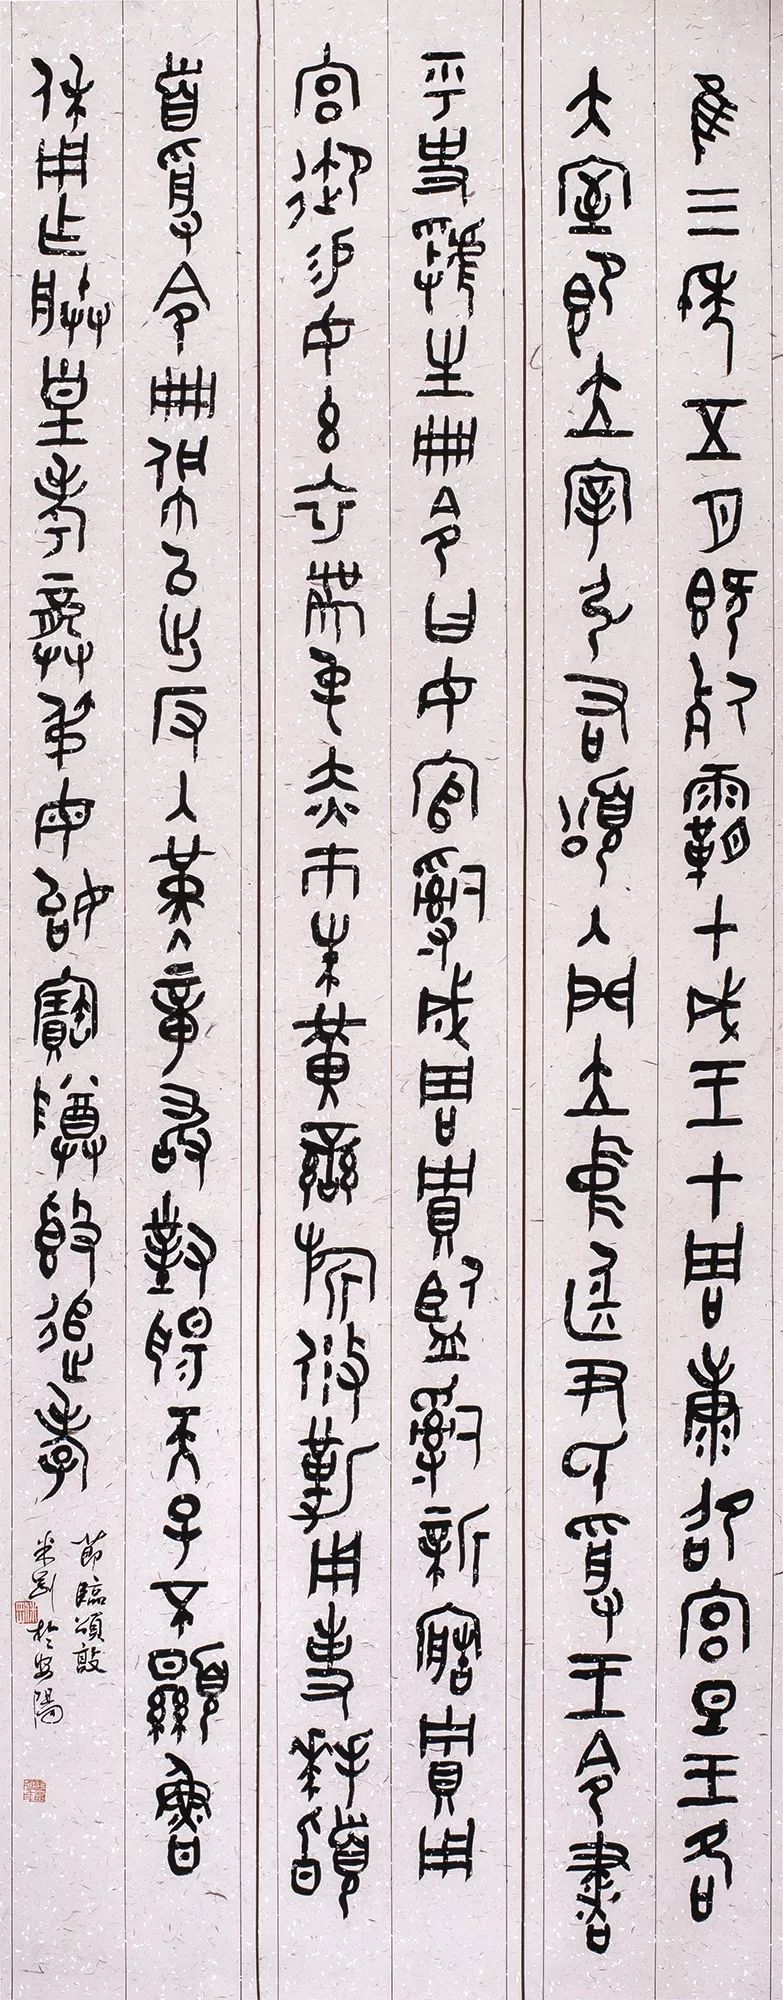 隹三年五月既死霸甲戌王才周康卲宮旦王各
大室即立宰引右頌入門立中廷尹氏受王令書
乎史虢生冊令曰女官𤔲成周貯監𤔲新造貯用
宮御易女玄衣黹屯赤巿朱黃䜌旂攸勒用事拜䭫
首受令冊佩以出反入堇章敢對揚天子不顯魯
休用乍朕皇考龏弔母始寶尊𣪘追孝
節臨頌敦
米剛於安陽